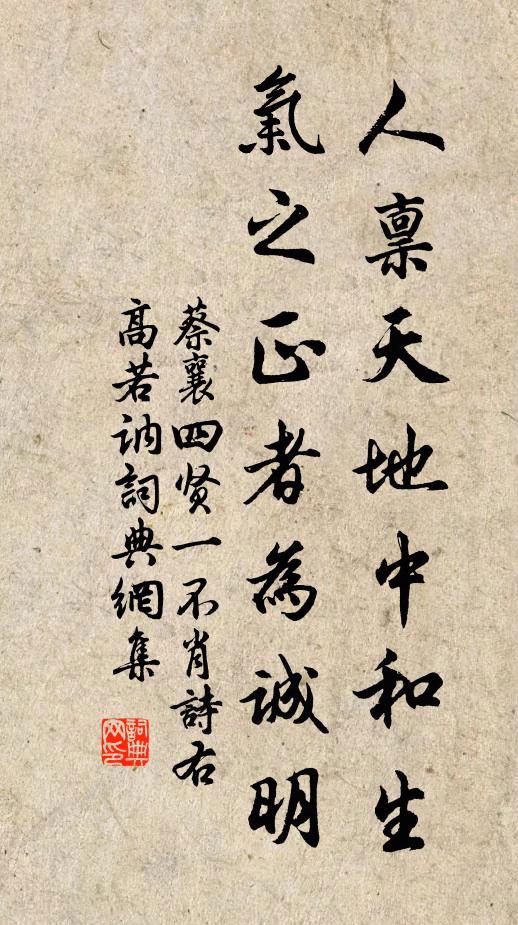 人稟天地中和生
氣之正者為誠明
蔡襄四贤一不肖詩右
高若讷詞典網集
詞典
网印